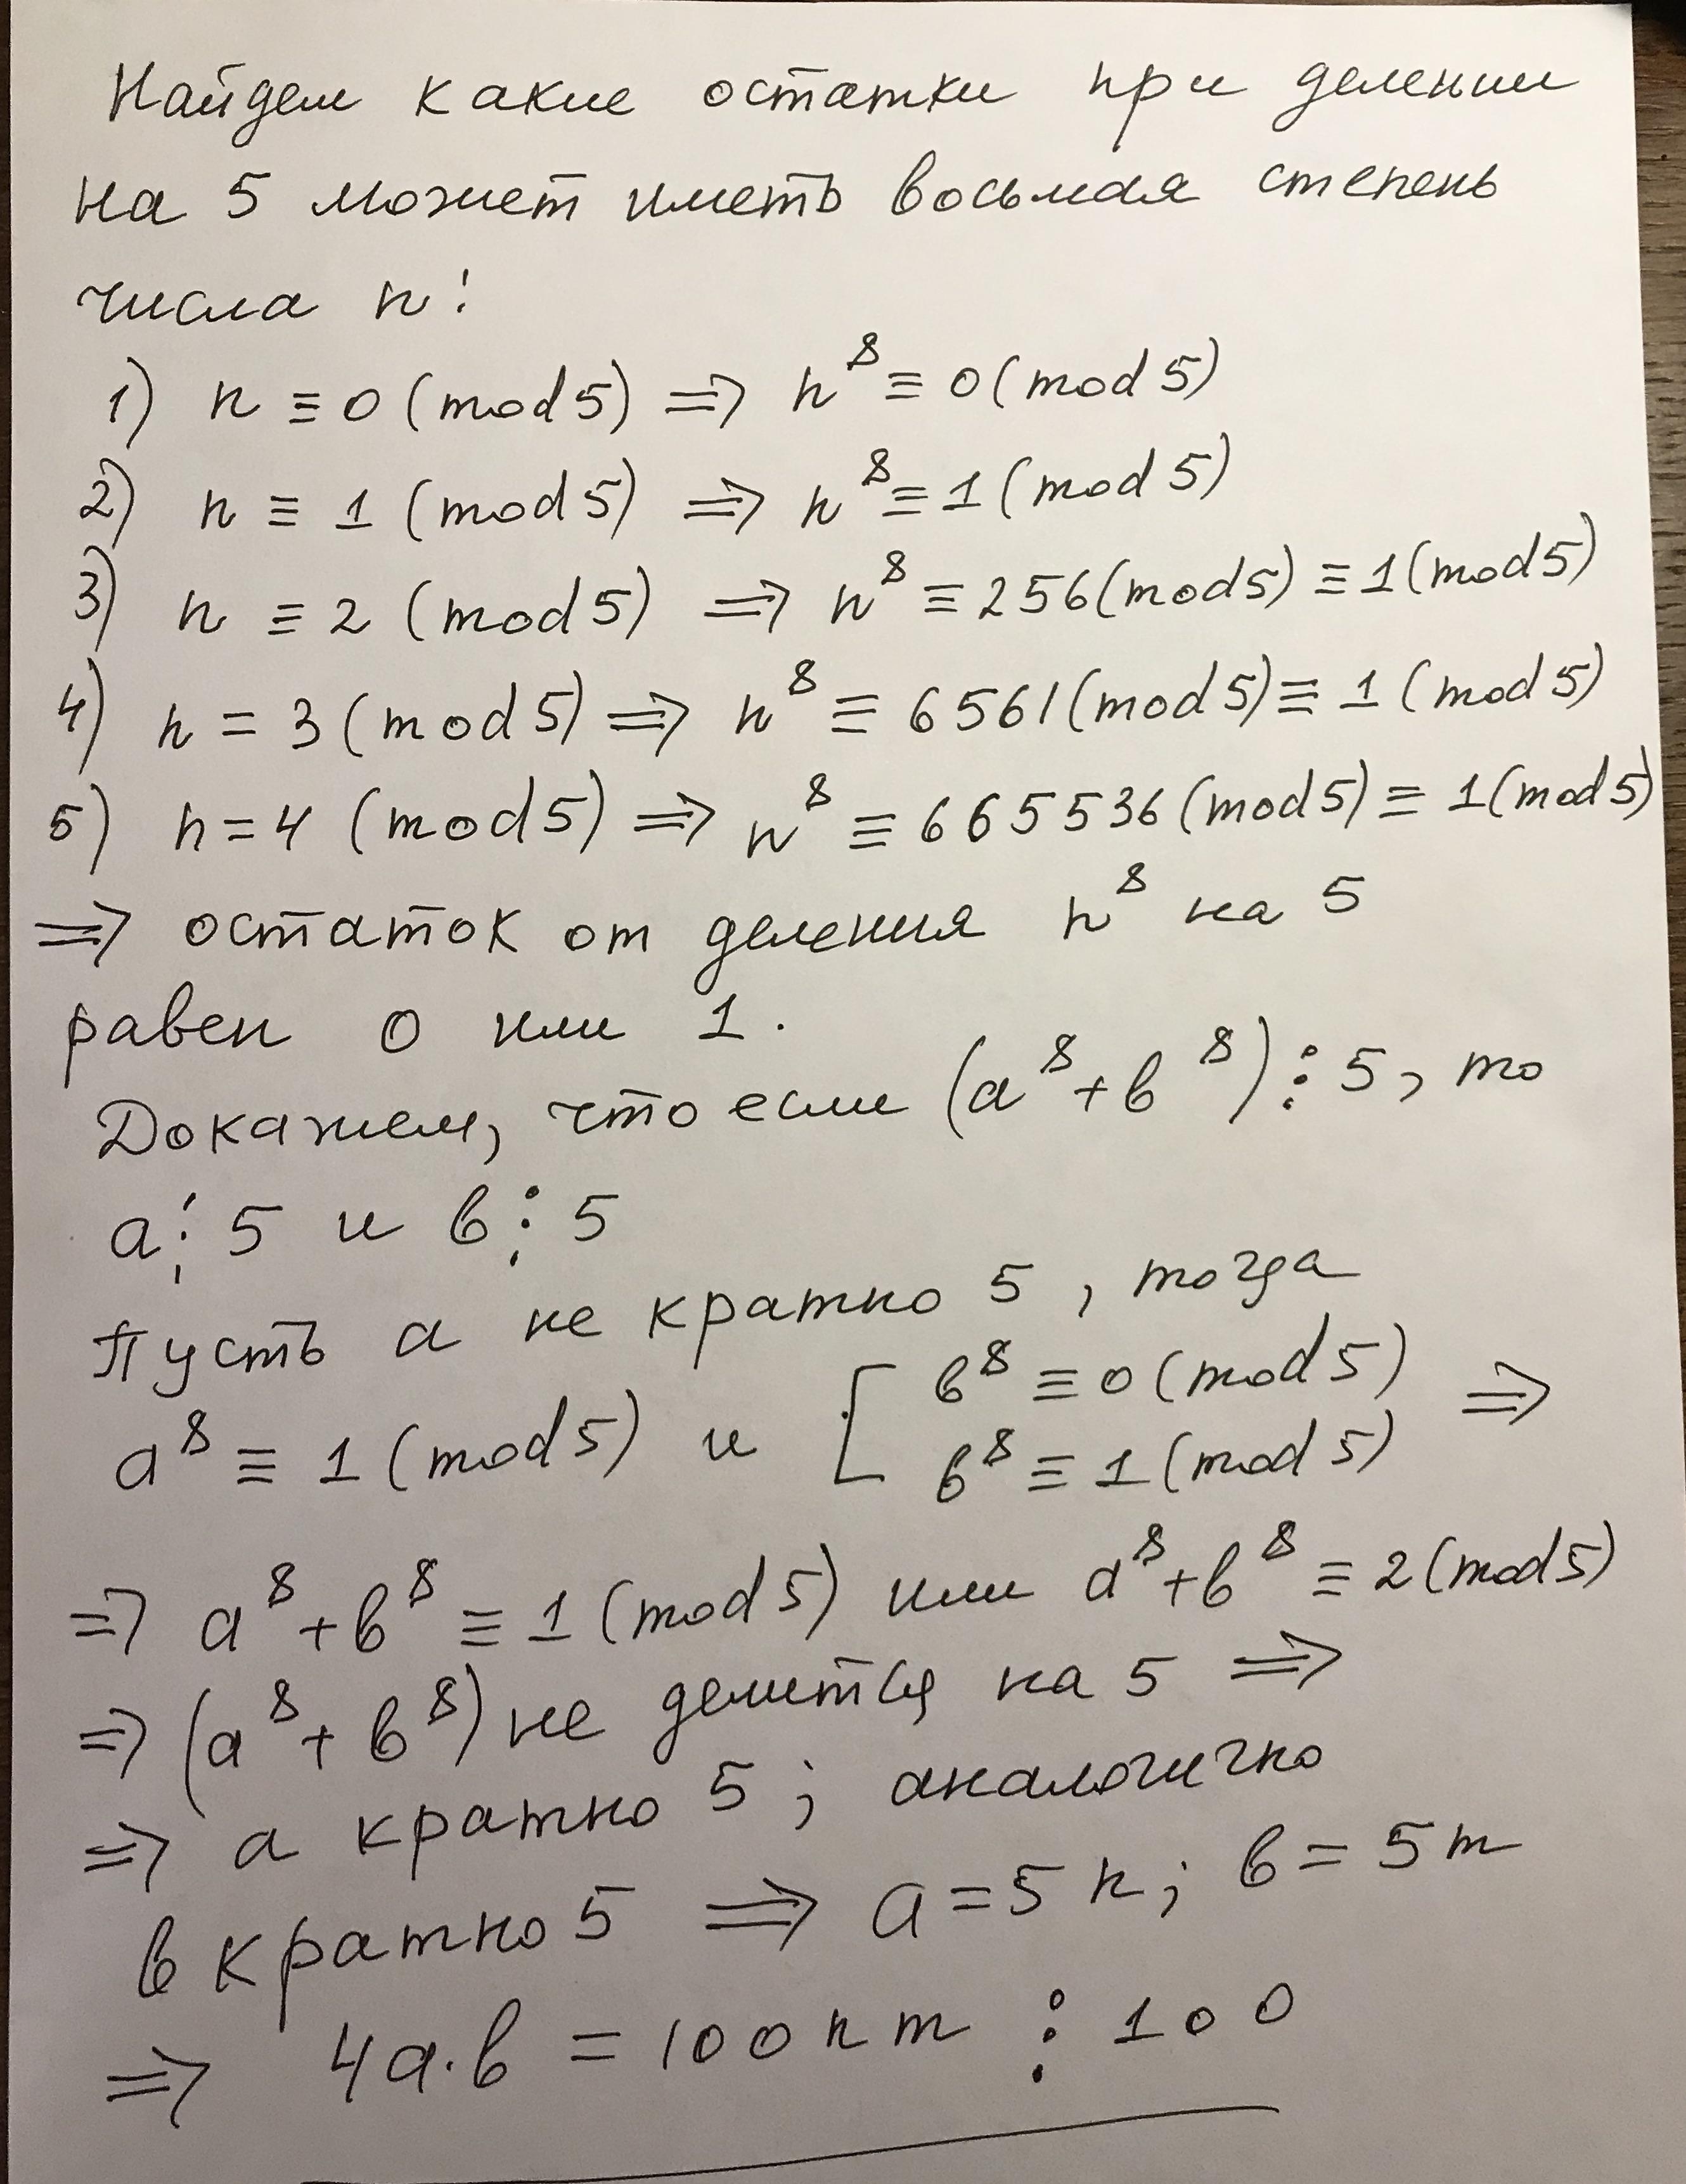 Найдем какие остатки при делении
на 5 может иметь восьмая степень
числа n:
1) n ≡ 0 (mod 5) ⇒ n⁸ ≡ 0 (mod 5)
2) n ≡ 1 (mod 5) ⇒ n⁸ ≡ 1 (mod 5)
3) n ≡ 2 (mod 5) ⇒ n⁸ ≡ 256 (mod 5) ≡ 1 (mod 5)
4) n = 3 (mod 5) ⇒ n⁸ ≡ 6561 (mod 5) ≡ 1 (mod 5)
5) n = 4 (mod 5) ⇒ n⁸ ≡ 665536 (mod 5) ≡ 1 (mod 5)
⇒ остаток от деления n⁸ на 5
равен 0 или 1.
Докажем, что если (a⁸ + b⁸) ⋮ 5, то
a ⋮ 5 и b ⋮ 5
Пусть a не кратно 5, тогда
a⁸ ≡ 1 (mod 5) и [ b⁸ ≡ 0 (mod 5) ⇒
b⁸ ≡ 1 (mod 5)
⇒ a⁸ + b⁸ ≡ 1 (mod 5) или a⁸ + b⁸ ≡ 2 (mod 5)
⇒ (a⁸ + b⁸) не делится на 5 ⇒
⇒ a кратно 5; аналогично
b кратно 5 ⇒ a = 5n; b = 5m
⇒ 4a·b = 100nm ⋮ 100